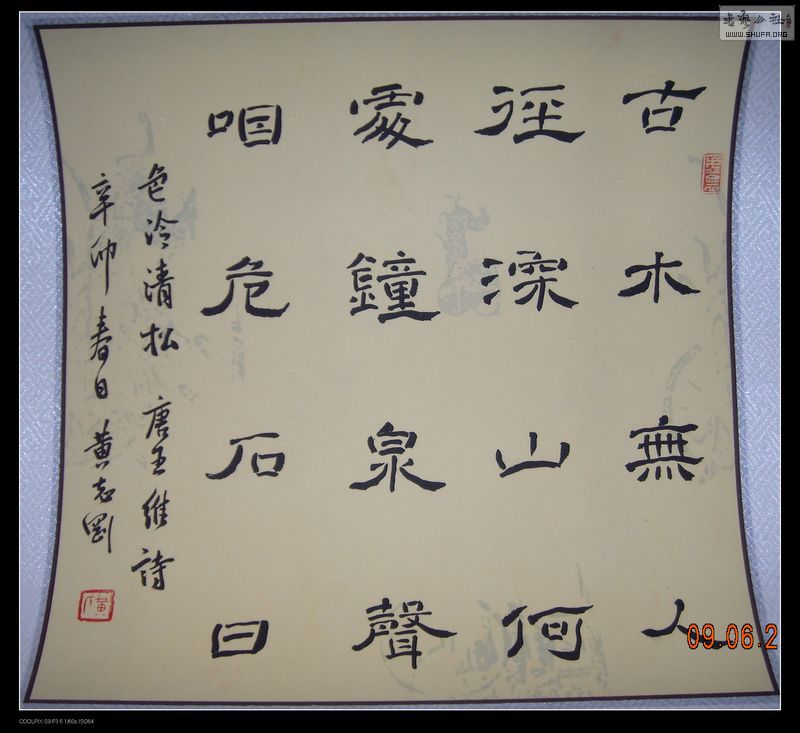 古木無人
徑深山何
處鐘泉聲
咽危石日
色冷清松 唐王維詩
辛卯春日 黄志剛
書藝公社
WWW.SHUFA.ORG
09.06.2
COOLPIX S9 F3.5 1/60s ISO64